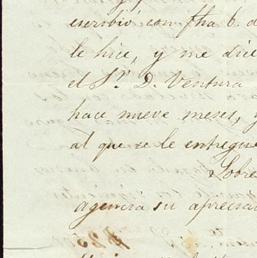 escribió con fha 6. d
le hice, y me dice
el Sr. D. Ventura
hace nueve meses, y
al que se le entregue
Sobre
agencia su aprecia